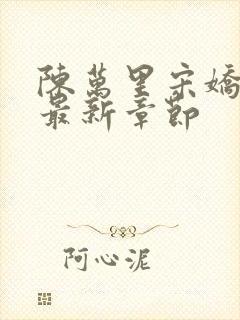 陳萬里宋嬌
最新章節
阿心泥